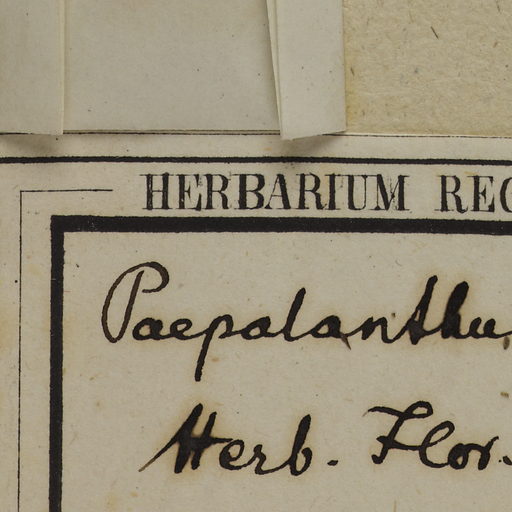 HERBARIUM REG
Paepalanthu
Herb. Flor.